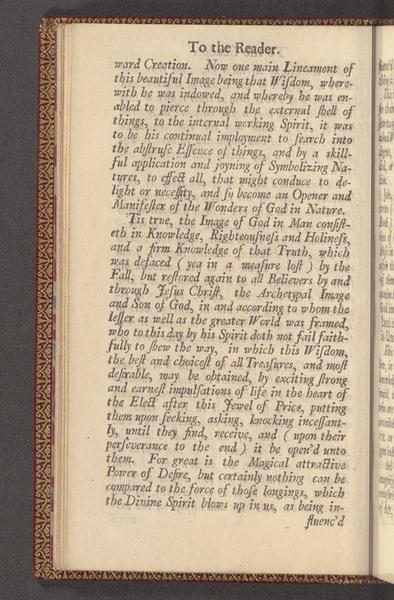 To the Reader.
ward Creation. Now one main Lineament of
this beautiful Image being that Wiſdom, where-
with he was indowed, and whereby he was en-
abled to pierce through the external ſhell of
things, to the internal working Spirit, it was
to be his continual imployment to ſearch into
the abſtruſe Eſſence of things, and by a skill-
ful application and joyning of Symbolizing Na-
tures, to effect all, that might conduce to de-
light or neceſſity, and ſo become an Opener and
Manifeſter of the Wonders of God in Nature.
'Tis true, the Image of God in Man conſiſt-
eth in Knowledge, Righteouſneſs and Holineſs,
and a firm Knowledge of that Truth, which
was defaced (yea in a meaſure loſt) by the
Fall, but reſtored again to all Believers by and
through Jeſus Chriſt, the Archetypal Image
and Son of God, in and according to whom the
leſſer as well as the greater World was framed,
who to this day by his Spirit doth not fail faith-
fully to ſhew the way, in which this Wiſdom,
the beſt and choiceſt of all Treaſures, and moſt
deſirable, may be obtained, by exciting ſtrong
and earneſt impulſations of life in the heart of
the Elect after this Jewel of Price, putting
them upon ſeeking, asking, knocking inceſſant-
ly, until they find, receive, and (upon their
perſeverance to the end) it be open'd unto
them. For great is the Magical attractive
Power of Deſire, but certainly nothing can be
compared to the force of thoſe longings, which
the Divine Spirit blows up in us, as being in-
fluenc'd